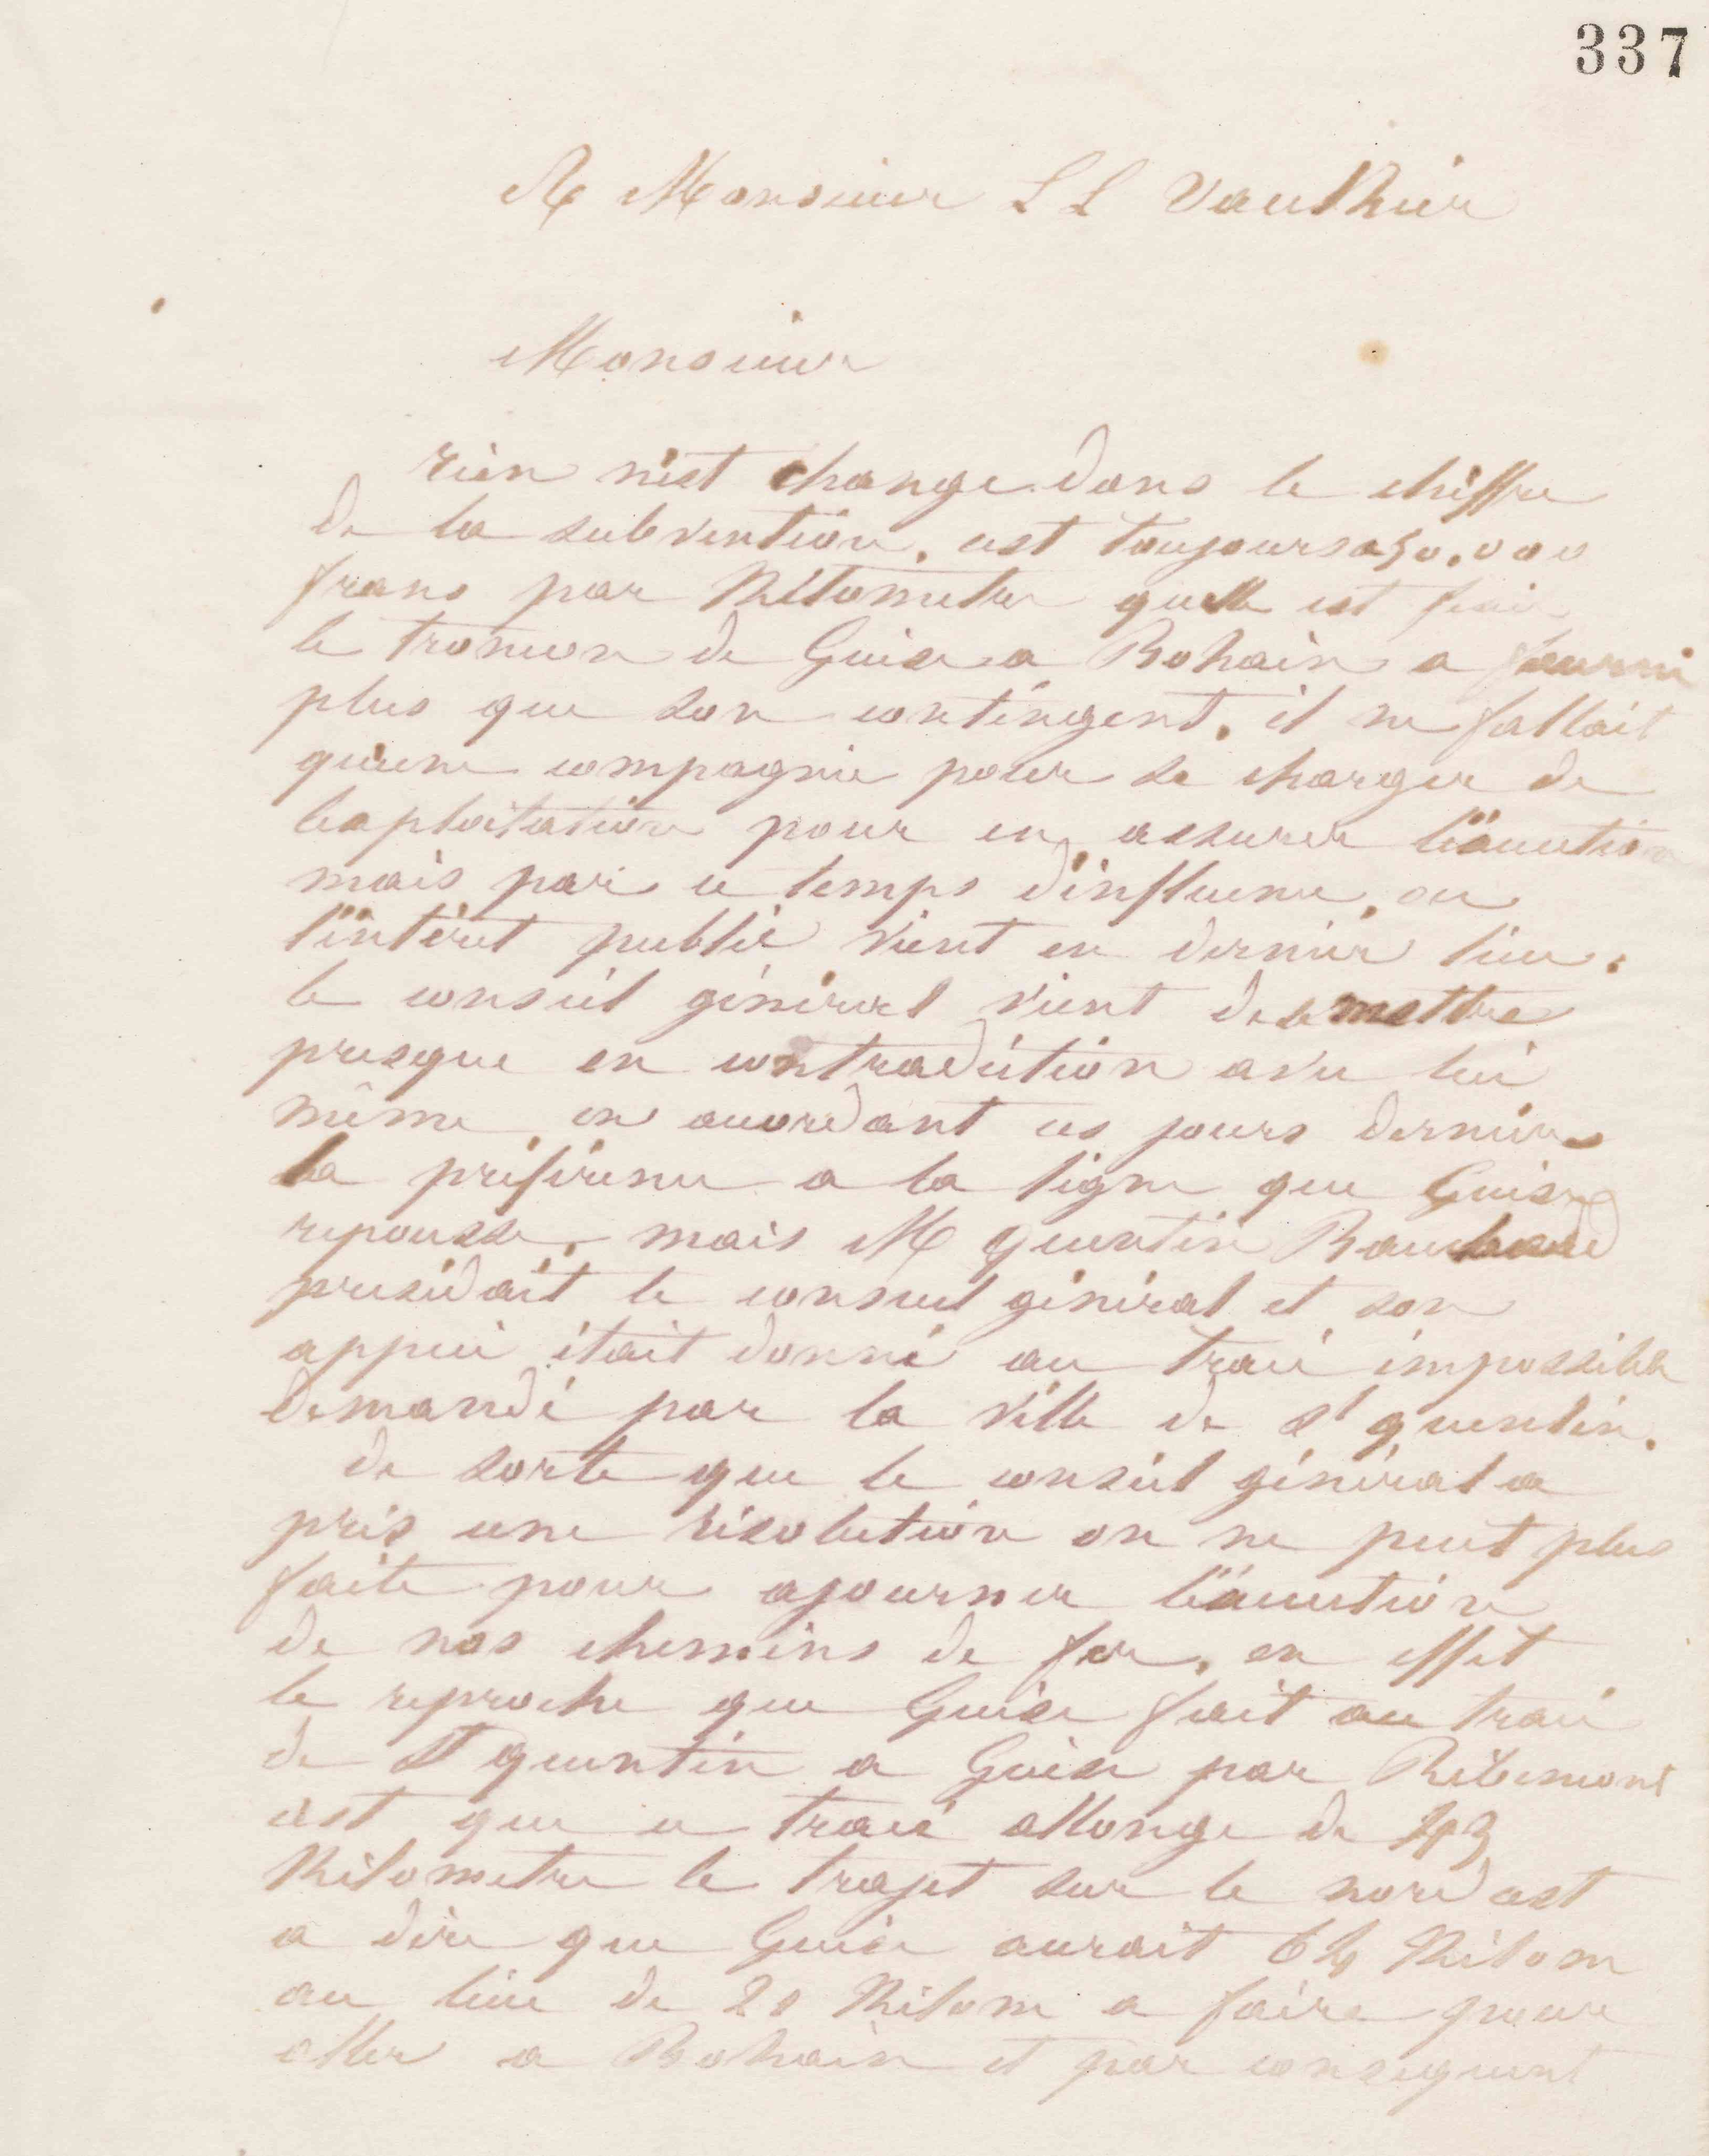 337
A Monsieur L L Vauthier
Monsieur
rien n'est changé dans le chiffre
de la subvention. cest toujours a 50.000
franc par Kilometre quelle est fixée
le troncon de Guise a Bohain a fourni
plus que son contingent. il ne fallait
qu'une compagnie pour se charger de
lexploitation pour en assurer l'éxécution
mais par ce temps d'influence, ou
l'intéret public vient en dernier lieu.
le conseil général vient de se mettre
presque en contradiction avec lui
même en accordant ces jours derniers
la préférence a la ligne que Guise
repousse. mais M quentin Bauchard
presidait le conseil général et son
appui était donné au tracé impossible
demandé par la ville de St quentin.
de sorte que le conseil général a
pris une résolution on ne peut plus
faite pour ajourner l'éxécution
de nos chemins de fer. en effet
le reproche que Guise fait au tracé
de St quentin a Guise par Ribemont
cest que ce tracé allonge de 43
Kilometre le trajet sur le nord cest
a dire que Guise aurait 64 Kilom
au lieu de 20 Kilom a faire pour
aller a Bohain et par consequent